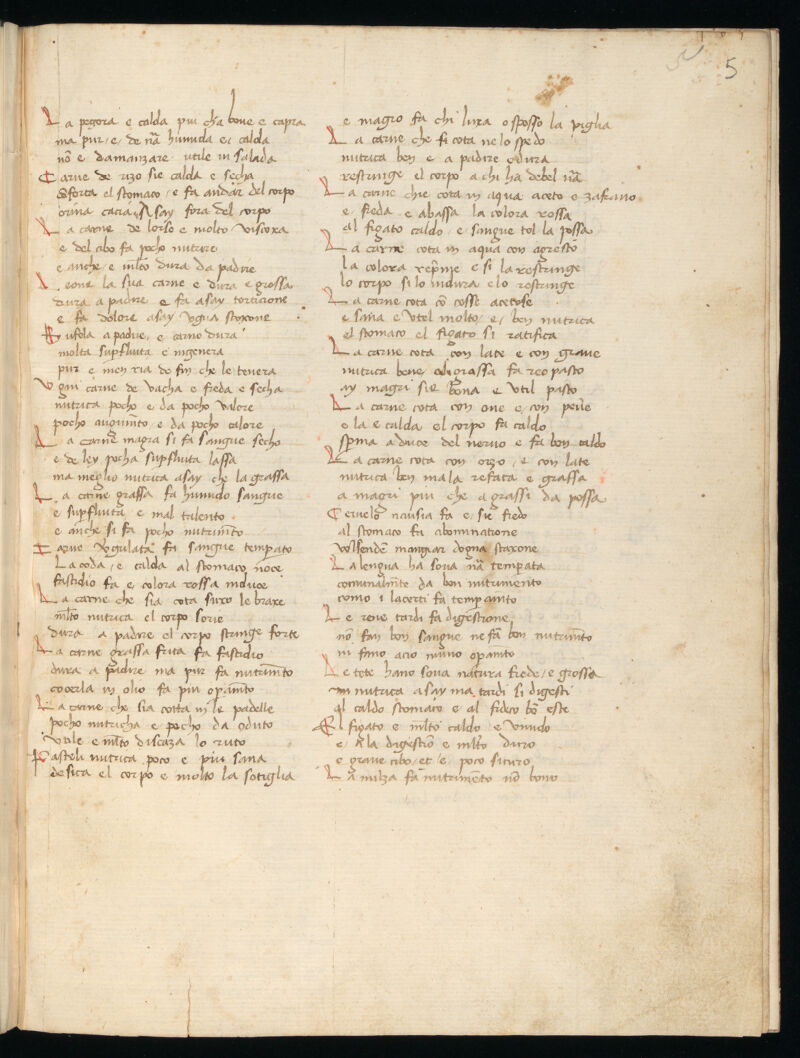 5
La pegora e calda piu cha bove e capra
ma pur e de nã humida e calda
nõ e damanzare utile in salada
Carne de rizo sie calda e secha
Sforta el stomaco e fa andar del corpo
orina cacia asay fora del corpo
La carne de lorso e molto viscoxa
e del cibo fa pocho nutrire
e anche e mlto dura da padire
Leone la sua carne e dura e grossa
dura a padire e fa asay torticione
e fa dolore asay ogna stoxone
Bufola a padire e carne dura
molta supfluita e ingenera
pur e men ria de fin che le tenera
Ogni carne de vacha e freda e secha
nutrica pocho e da pocho valore
pocho augumto e da pocho calore
La carne magra si fa sangue secho
e de ley pocha supfluita lassa
ma meglio nutrica asay che la grassa
La carne grassa fa humido sangue
e supfluita e mal talento
e anche si fa pocho nutrimto
Carne vgulata fa sangue temperato
La coda e calda al stomaco noce
fastidio fa e colora rossa induce
La carne che sia cota suxo le braxe
mlto nutrica el corpo sorie
dura a padire el corpo stringe forte
La carne grassa frita fa fastidio
dura a padire ma pur fa nutrimto
cocerla in olio fa piu opamto
La carne che sia cotta in le padelle
pocho nutricha e pocho da oduto
Utile e mlto discaza lo ruto
Pasteli nutrica poco e piu sana
desica el corpo e molto la sotiglia
e magro fa chi luxa o spesso la piglia
La carne che si cota ne lo spedo
nutrica ben e a padire e dura
restringe el corpo a chi ha debel nã
La carne che cota in aqua aceto e zafrano
e freda e abassa la colora rossa
al figato caldo e sangue tol la possa
La carne cota in aqua con agresto
la colora repme e si la restringe
lo corpo si lo indura e lo restringe
La carne cota cõ cosse acetose
e sana e utel molto e ben nutrica
el stomaco el figato si ratifica
La carne cota con late e con grane
nutrica bene e ingrassa fa reo pasto
ay magri sie bona e util pasto
La carne cota con oue e con peuere
e la e calda el corpo fa caldo
sperma aduce del neruo e fa bon caldo
La carne cota con orzo e con late
nutrica ben mala refata e grassa
a magri piu che a grassi da possa
Ceruelo nausia fa e sie fredo
al stomaco fa abominatione
volsendẽ mangiar dogna stoxone
La lengua ha soua nã temperata
comunalmte da bon nutrimento
como i lacerti fa tempamto
Le rene tardi fa digestione
nõ fan bon sangue ne fã bon nutrimto
ni fano acio niuno opamto
Le tete hano soua natura frede e grossa
nutrica asay ma tardi si digesti
al caldo stomaco e al fideco bõ este
El figato e mlto caldo e humido
e a la digestiõ e mlto duro
e graue cibo et e poco sicuro
La milza fa nutrimẽto nõ bono